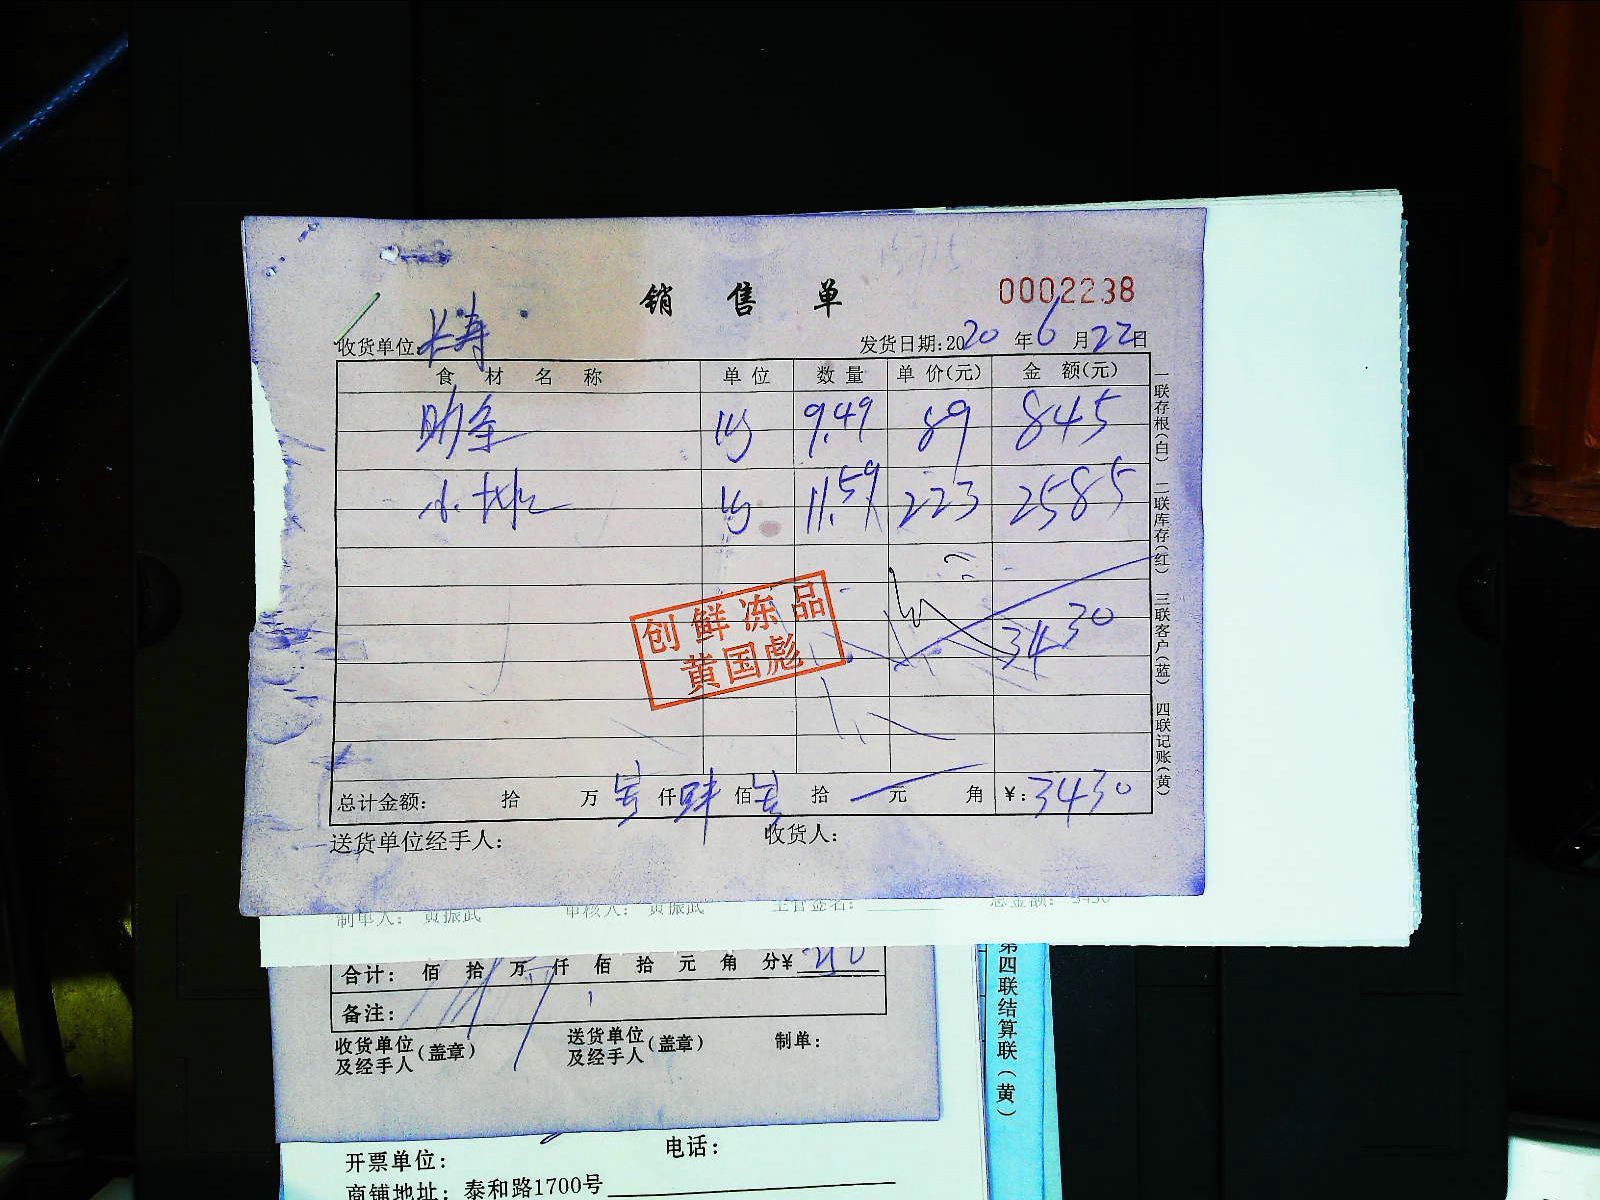 销售单
0002238
收货单位:长寿
发货日期:2020年6月22日
食材名称 单位 数量 单价(元) 金额(元)
肋条 kg 9.49 89 845
kg 11.59 223 2585
3430
创鲜冻品
黄国彪
总计金额: 拾 万 仟 肆 佰 拾 元 角 ¥:3430
送货单位经手人: 收货人:
一联存根(白) 二联库存(红) 三联客户(蓝) 四联记账(黄)
制单人: 黄振武 审核人: 黄振武 主管签名: 总金额: 3430
合计: 佰 拾 万 仟 佰 拾 元 角 分¥
备注:
收货单位及经手人(盖章) 送货单位及经手人(盖章) 制单:
第四联结算联(黄)
开票单位: 电话:
商铺地址: 泰和路1700号